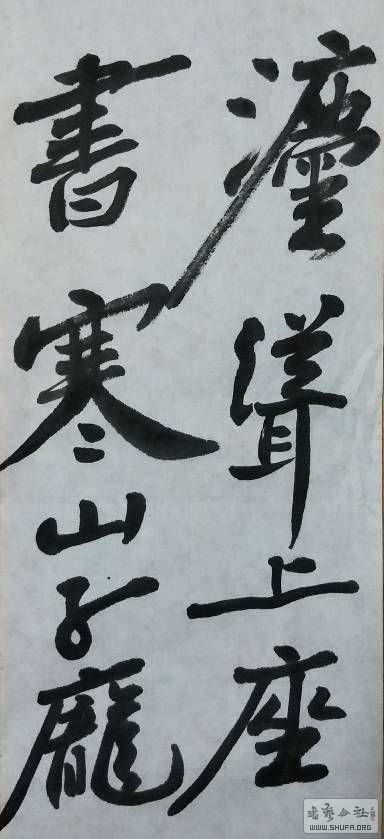 灋聳上座
書寒山子龐
书艺公社
WWW.SHUFA.ORG